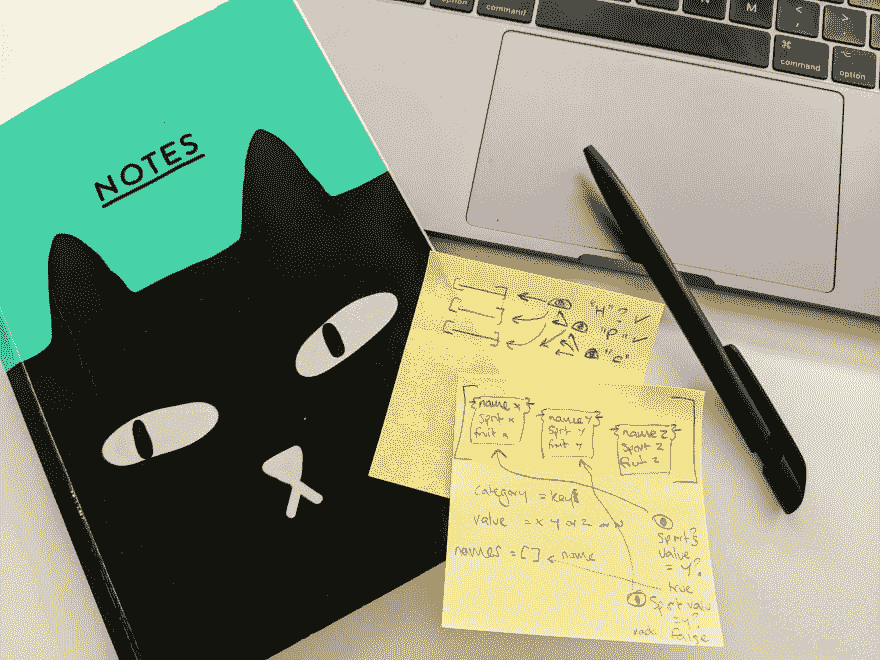 option
command
N
M
<
,
>
.
⌘
command
⌥
option
NOTES
"H"? ✓
"P" ✓
"C"
[{name x}
sprt x
fruit x
{name Y}
Sprt Y
fruit Y
{name Z}
Sport Z
fruit Z]
category = key
value = x Y or Z
names = [] ← name
Sport?
value
= Y?
true
Sport value
= Y?
false